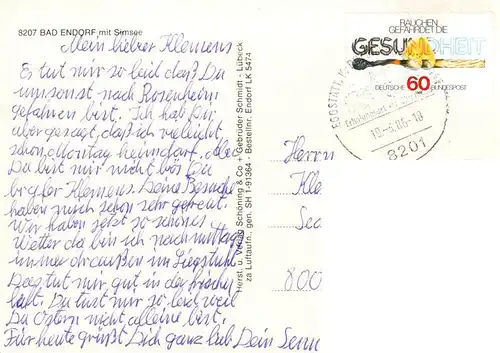 8207 BAD ENDORF mit Simsee
Mein lieber Klemens
Es tut mir so leid daß Du
umsonst nach Rosenheim
gefahren bist. Ich hab Dir
aber gesagt, daß ich vielleicht
schon Montag heimdarf. Aber
Du bist mir nicht bös Du
Klemens. Deine Besuche
haben mich schon sehr gefreut.
Wir haben jetzt so schönes
Wetter da bin ich nachmittags
immer draußen im Liegstuhl
Das tut mir gut in der frischen
Luft. Du tust mir so leid weil
Du Ostern nicht alleine bist.
Für heute grüßt Dich ganz lieb Dein
Herst. u. Verlag Schöning & Co + Gebrüder Schmidt - Lübeck
za Luftaufn., gen. SH 1-91364 - Bestellnr. Endorf LK 5474
RAUCHEN
GEFÄHRDET DIE
GESUNDHEIT
DEUTSCHE 60 BUNDESPOST
8201
Herrn
Kle
800